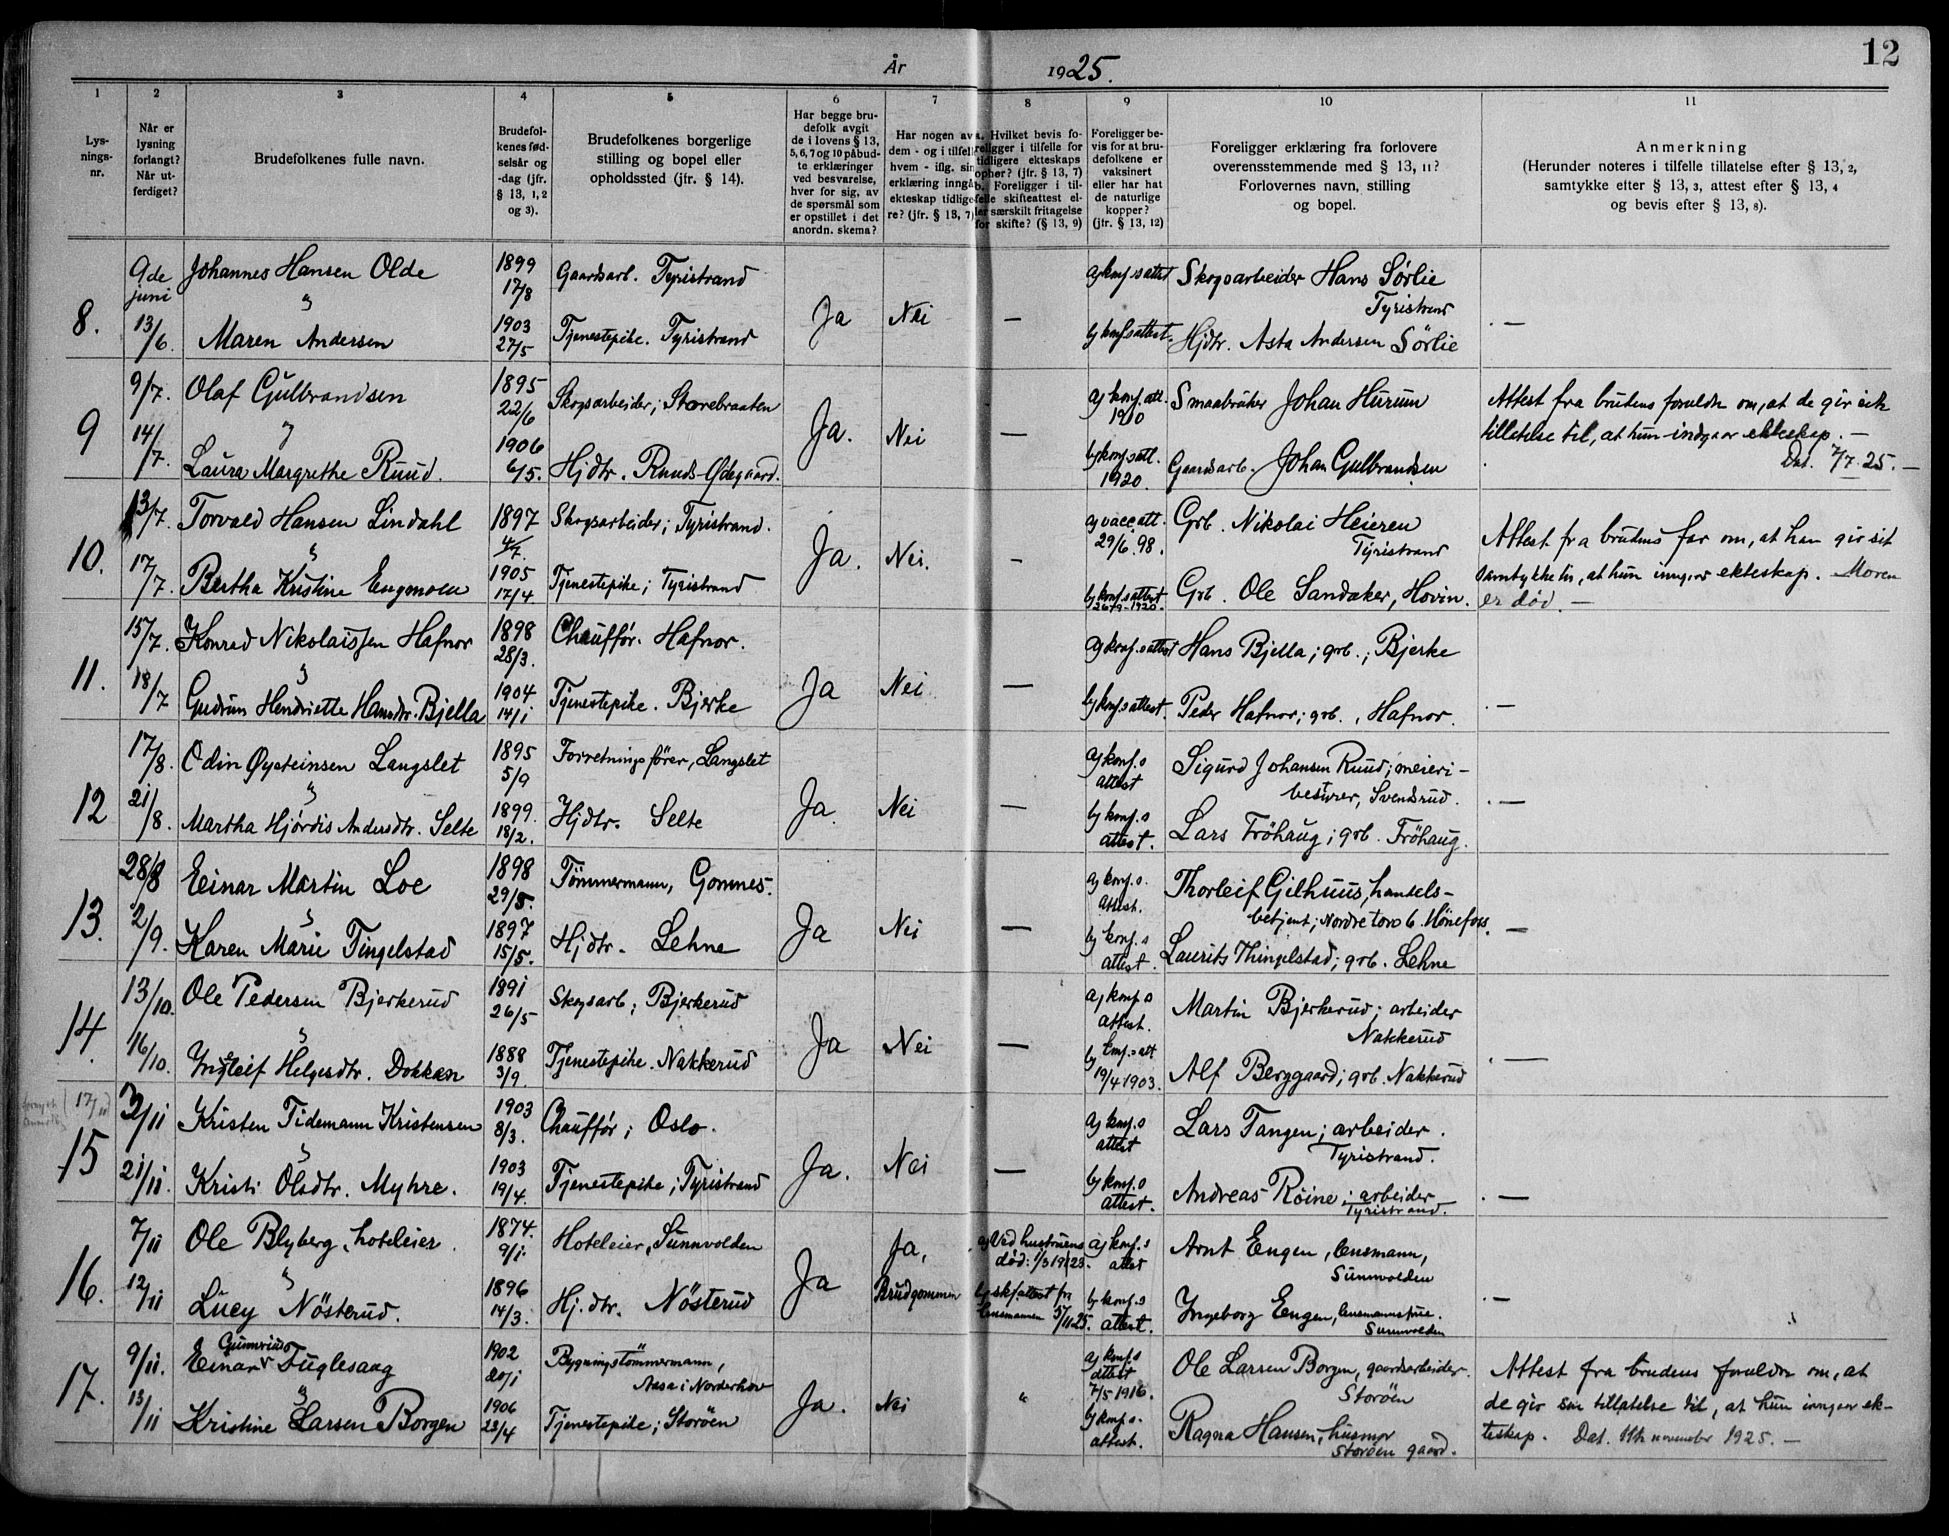 12
År 1925.
1 2 3 4 5 6 7 8 9 10 11
Lys-
nings-
nr.
Når er
lysning
forlangt?
Når ut-
ferdiget?
Brudefolkenes fulle navn.
Brudefol-
kenes fød-
selsår og
-dag (jfr.
§ 13, 1, 2
og 3).
Brudefolkenes borgerlige
stilling og bopel eller
opholdssted (jfr. § 14).
Har begge bru-
defolk avgit
de i lovens § 13,
5, 6, 7 og 10 påbud-
te erklæringer
ved besvarelse,
hver for sig, av
de spørsmål som
er opstillet i det
anordn. skema?
Har nogen av
dem - og i tilfelle
hvem - iflg. sin
erklæring inngåt
ekteskap tidlige-
re? (jfr. § 13, 7)
a. Hvilket bevis fo-
religger i tilfelle for
tidligere ekteskaps
ophør? (jfr. § 13, 7)
b. Foreligger i til-
felle skifteattest el-
ler særskilt fritagelse
for skifte? (§ 13, 9)
Foreligger be-
vis for at bru-
defolkene er
vaksinert
eller har hat
de naturlige
kopper?
(jfr. § 13, 12)
Foreligger erklæring fra forlovere
overensstemmende med § 13, 11?
Forlovernes navn, stilling
og bopel.
Anmerkning
(Herunder noteres i tilfelle tillatelse efter § 13, 2,
samtykke efter § 13, 3, attest efter § 13, 4
og bevis efter § 13, 8).
8. 9de juni Johannes Hansen Olde 1899 17/8 Gaardsarb. Tyristrand Ja Nei — a) konf.sattest Skogsarbeider Hans Sörlie
Tyristrand
13/6 Maren Andersen 1903 27/5 Tjenestepike. Tyristrand b) konf.sattest. Hjdtr. Asta Andersen Sörlie —
9 9/7. Olaf Gulbrandsen 1895 22/6 Skogsarbeider; Storebraaten Ja. Nei — a) konf. att. 1910 Smaabruker Johan Hurum
14/7. Laura Margrethe Ruud. 1906 6/5. Hjdtr. Ruuds-Ødegaard. b) konf.satt. 1920. Gaardsarb. Johan Gulbrandsen
Attest fra brudens foreldre om, at de gir sik
tillatelse til, at hun indgaar ekteskap. —
Dat. 7/7 25. —
10. 13/7. Torvald Hansen Lindahl 1897 4/7. Skogsarbeider; Tyristrand. Ja. Nei. — a) vacc.att. 29/6.98. Grb. Nikolai Heieren
Tyristrand
17/7. Bertha Kristine Engmoen 1905 17/4. Tjenestepike; Tyristrand b) konf.sattest 26/9-1920. Grb. Ole Sandaker, Hovin.
Attest fra brudens far om, at han gir sit
samtykke til, at hun inngaar ekteskap. Moren
er död. —
11. 15/7. Konrad Nikolaissen Hafnor 1898 28/3. Chaufför. Hafnor. Ja Nei — a) konf.sattest Hans Bjella; grb.; Bjerke
18/7 Gudrun Hendriette Hansdtr. Bjella 1904 14/1 Tjenestepike. Bjerke b) konf.sattest. Peder Hafnor; grb., Hafnor. —
12 17/8. Odin Øysteinsen Langslet 1895 5/9 Forretningsförer, Langslet Ja. Nei — a) konf.s attest Sigurd Johansen Ruud; meieri-
bestyrer, Svendsrud.
21/8. Martha Hjördis Andersdtr. Selte 1899. 18/2. Hjdtr. Selte b) konf.s attest. Lars Fröhaug; grb. Fröhaug. —
13. 28/8 Einar Martin Loe 1898 29/5. Tömmermann, Gomnes. Ja Nei — a) konf.s. attest. Thorleif Gjelhuus, handels-
betjent; Nordre torv 6. Hönefoss.
2/9. Karen Marie Tingelstad 1897 15/5. Hjdtr. Lehne b) konf.s attest. Laurits Thingelstad; grb. Lehne —
14. 13/10. Ole Pedersen Bjerkerud 1891 26/5 Skogsarb; Bjerkerud Ja Nei — a) konf.s attest. Martin Bjerkerud; arbeider
Nakkerud
16/10. Helgesdtr. Dokken 1888 3/9. Tjenestepike. Nakkerud b) konf.satt 19/4 1903. Alf Berggaard; grb. Nakkerud —
15 (17/11) 2/11 Kristen Tidemann Kristensen 1903 8/3. Chaufför; Oslo. Ja. Nei — a) konf.s attest Lars Tangen; arbeider.
Tyristrand.
21/11. Kristi Olsdtr. Myhre. 1903 19/4. Tjenestepike; Tyristrand b) konf.s attest. Andreas Röine; arbeider
Tyristrand. —
16. 7/11 Ole Blyberg, hoteleier. 1874. 9/1. Hoteleier, Sunnvolden Ja Ja, Brudgommen a) Ved hustruens död: 1/3 1923. a) konf.s attest Arnt Engen, lensmann,
Sunnvolden
12/11 Lucy Nösterud. 1896 14/3. Hj.dtr. Nösterud b) skf.attest fra lensmannen 5/11 25. b) konf.s attest. Ingeborg Engen, lensmannsfrue.
Sunnvolden —
17. 9/11. Einar Fuglesaag 1902 20/1 Bygningstömmermann,
Aasa i Norderhov Ja. Nei " a) konf.s attest 7/5 1916. Ole Larsen Borgen, gaardsarbeider.
Storöen
13/11 Kristine Larsen Borgen 1906 23/4 Tjenestepike; Storöen b) konf.s. attest. Ragna Hansen, husmor
Storöen gaard.
Attest fra brudens foreldre om, at
de gir sin tillatelse til, at hun inngaar ek-
teskap. Dat. 11te november 1925. —